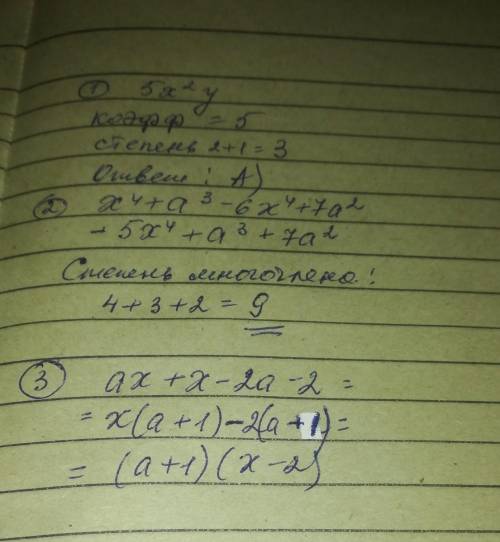 ① 5x²y
коэфф = 5
степень 2+1=3
Ответ: А)
② x⁴+a³-6x⁴+7a²
-5x⁴+a³+7a²
Степень многочлена:
4+3+2=9
③ ax+x-2a-2=
=x(a+1)-2(a+1)=
=(a+1)(x-2)